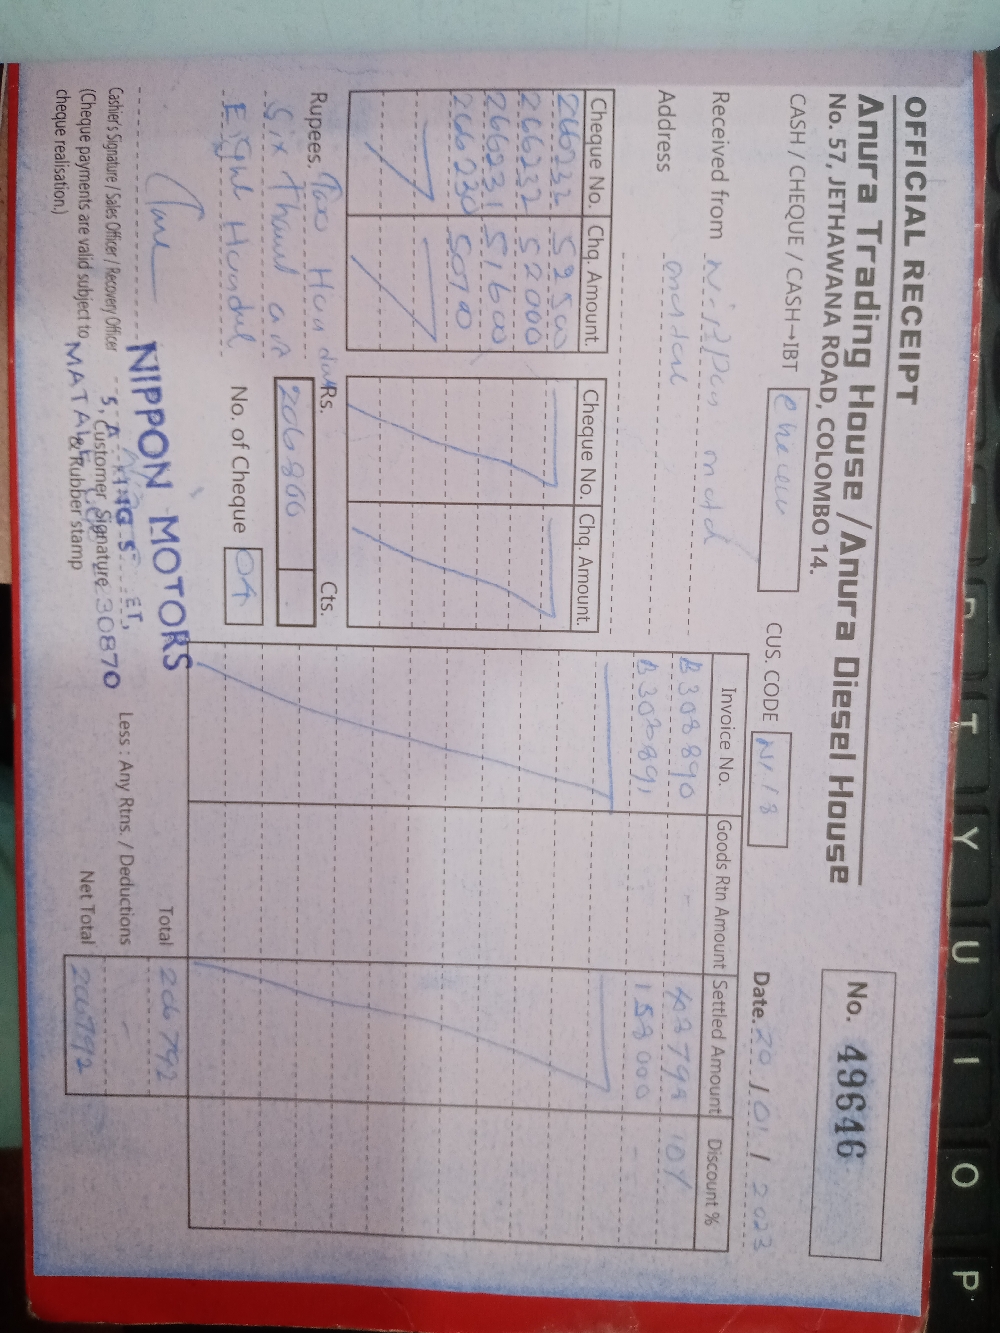 OFFICIAL RECEIPT
Anura Trading House / Anura Diesel House
No. 57, JETHAWANA ROAD, COLOMBO 14.
No. 49646
CASH / CHEQUE / CASH→IBT
CUS. CODE N118
Date. 20/01/2023
Received from
Address
Cheque No. Chq. Amount. Cheque No. Chq. Amount.
52500
266232 52000
266231 51600
266230 50700
Invoice No. Goods Rtn Amount Settled Amount Discount %
B308890 - 10%
- -
Rupees. Rs. Cts.
206800
Six
Eight
No. of Cheque 04
Total 206792
Less : Any Rtns. / Deductions -
Net Total 206792
Cashier's Signature / Sales Officer / Recovery Officer
(Cheque payments are valid subject to
cheque realisation.)
NIPPON MOTORS
Customer Signature
& Rubber stamp
T Y U I O P